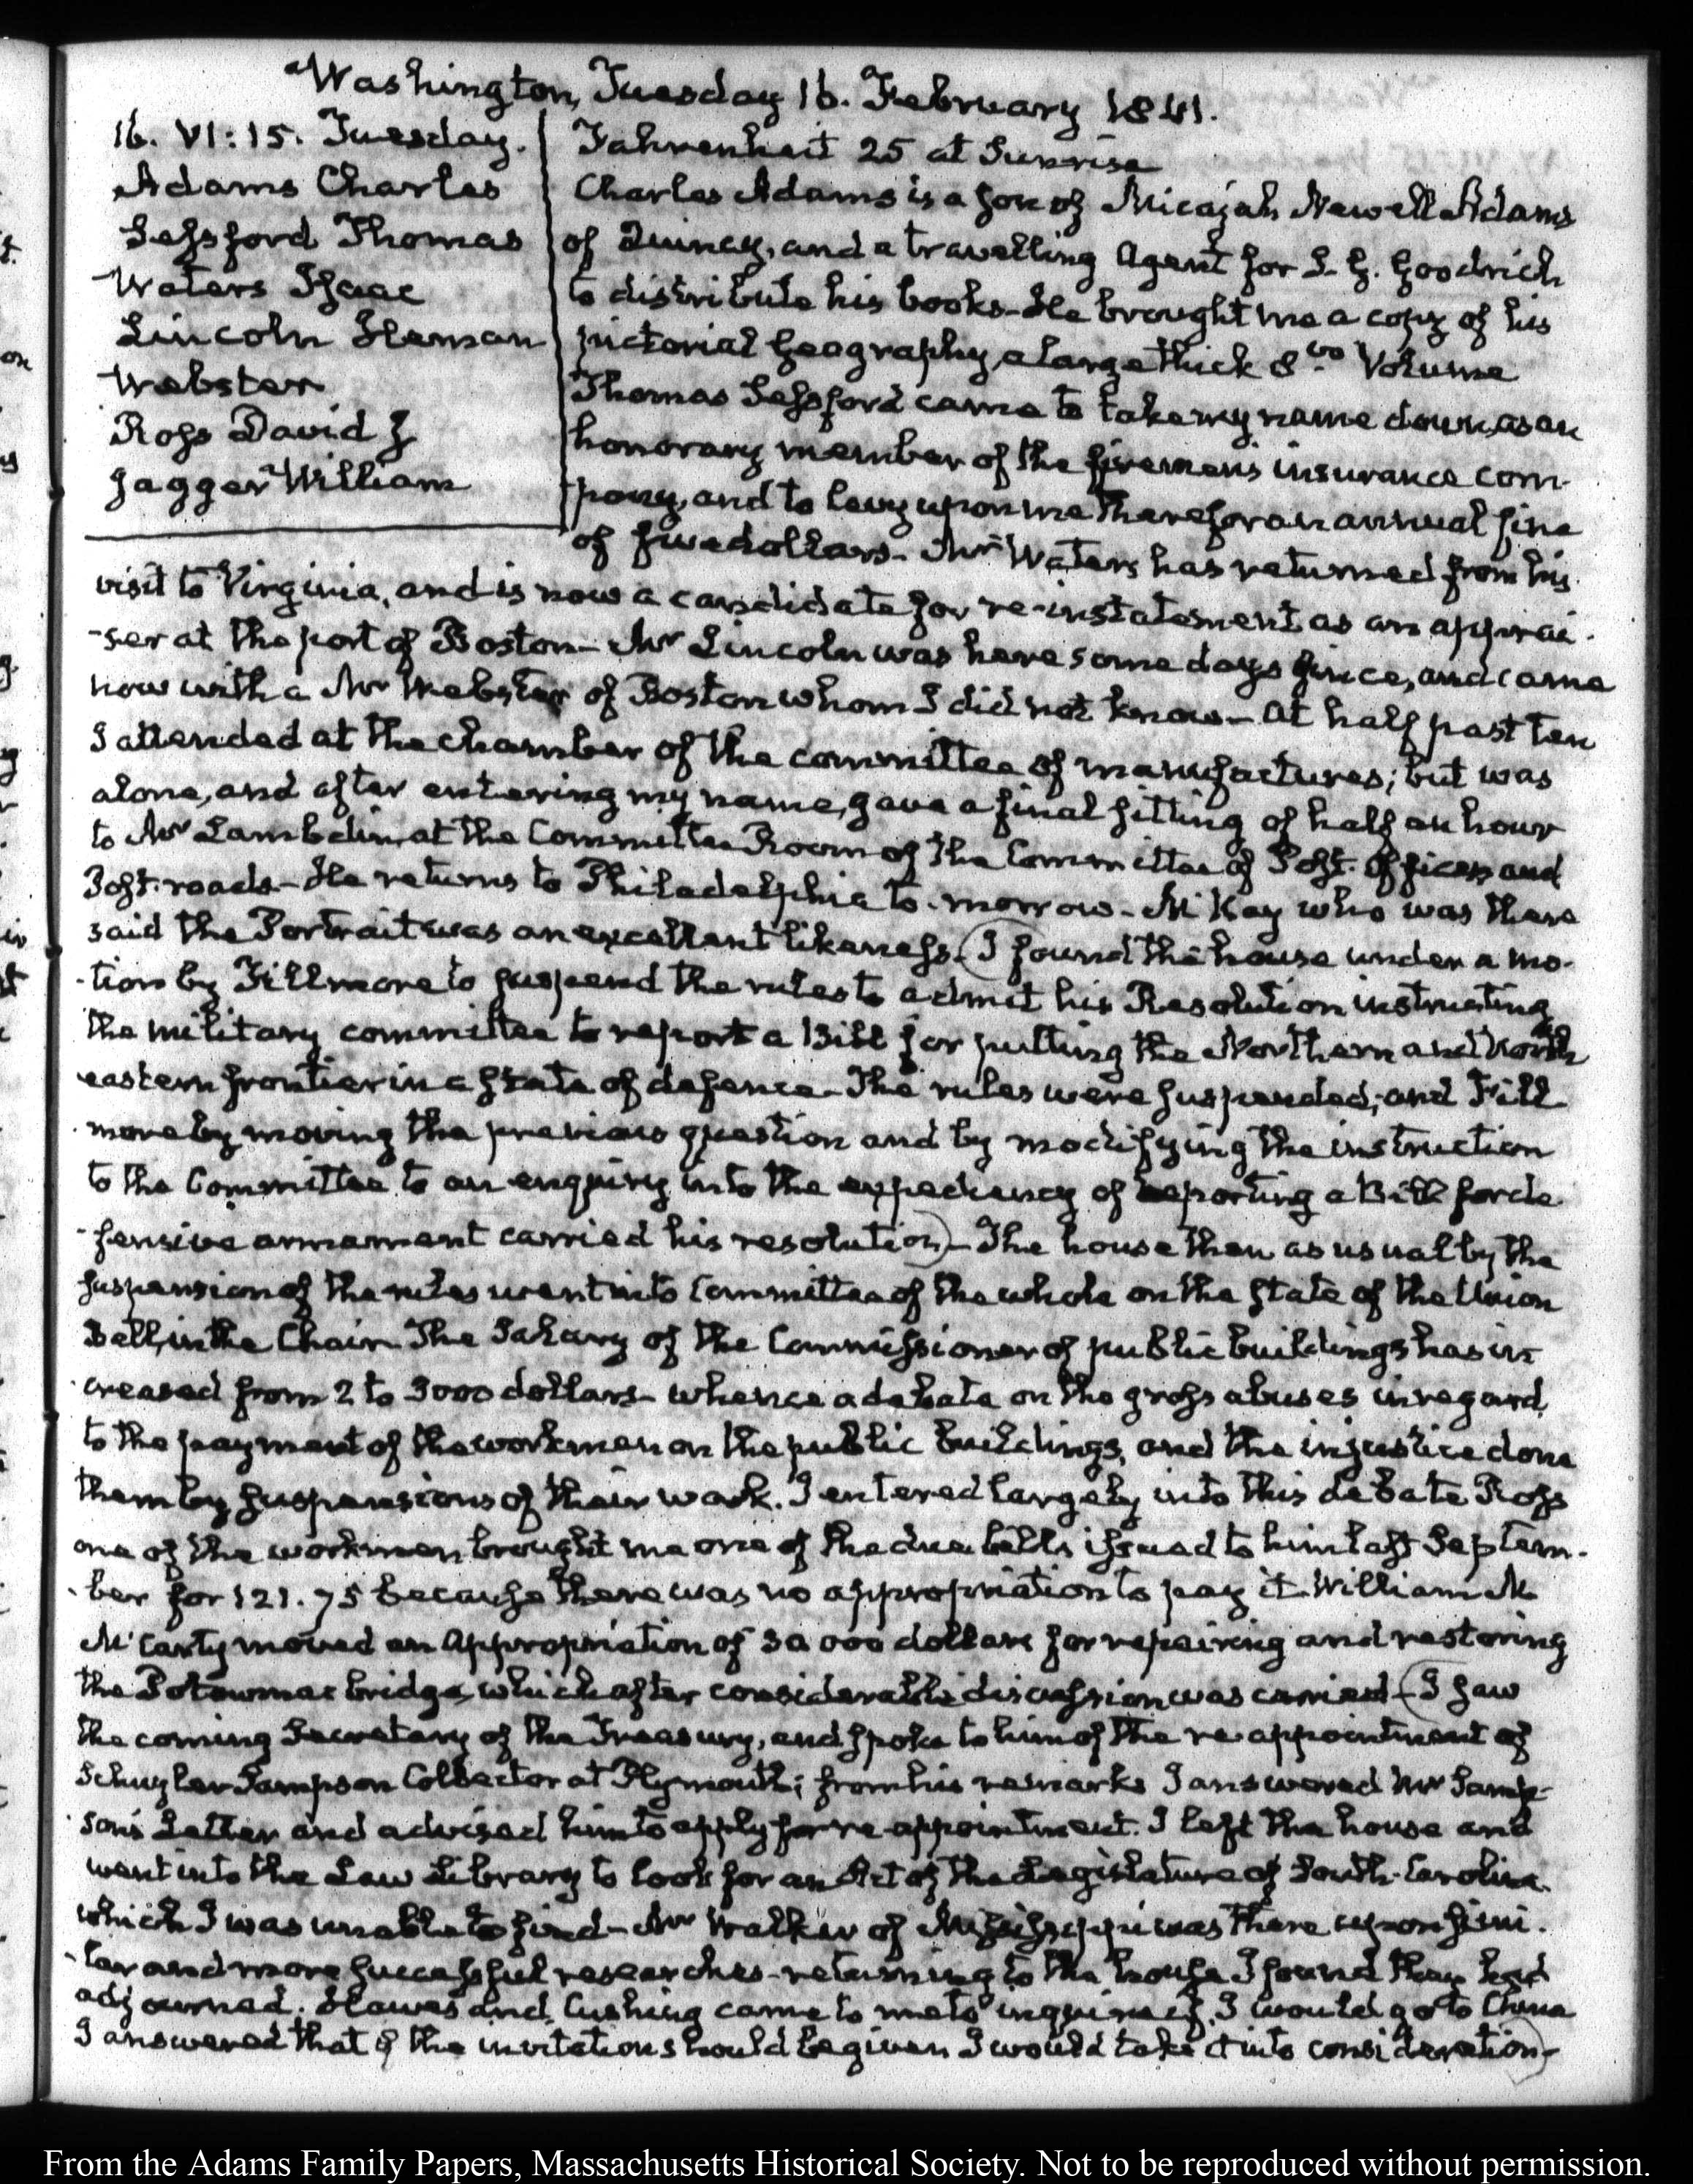 Washington, Tuesday 16. February 1841.
16. VI:15. Tuesday.
Adams Charles
Sessford Thomas
Waters Isaac
Lincoln Heman
Webster
Ross David J
Jagger William
Fahrenheit 25 at Sunrise
Charles Adams is a son of Micajah Newell Adams
of Quincy, and a travelling Agent for S. G. Goodrich
to distribute his books - He brought me a copy of his
pictorial Geography, a large thick 8vo. Volume
Thomas Sessford came to take my name down, as an
honorary member of the firemen's insurance com-
pany, and to levy upon me therefor an annual fine
of five dollars. Mr Waters has returned from his
visit to Virginia, and is now a candidate for re-instatement as an apprai-
-ser at the port of Boston - Mr Lincoln was here some days since, and came
now with a Mr Webster of Boston whom I did not know - At half past ten
I attended at the chamber of the committee of manufactures; but was
alone, and after entering my name, gave a final sitting of half an hour
to Mr Lambdin, at the Committee Room of the Committee of Post-Offices and
Post-roads - He returns to Philadelphia to-morrow - McKay who was there
said the Portrait was an excellent likeness. (I found the house under a mo-
-tion by Fillmore to suspend the rules to admit his Resolution instructing
the military committee to report a Bill for putting the Northern and North
eastern frontier in a state of defence - The rules were suspended; and Fill-
more by moving the previous question and by modifying the instruction
to the Committee to an enquiry into the expediency of reporting a Bill for de-
-fensive armament carried his resolution) - The house then as usual by the
suspension of the rules went into Committee of the whole on the State of the Union
Bell, in the Chair. The Salary of the Commissioner of public buildings has in-
creased from 2 to 3000 dollars - whence a debate on the gross abuses in regard
to the payment of the workmen on the public buildings, and the injustice done
them by suspensions of their work. I entered largely into this debate. Ross
one of the workmen brought me one of the due bills issued to him last Septem-
-ber for 121.75 because there was no appropriation to pay it. William M
McCarty moved an Appropriation of 30 000 dollars for repairing and restoring
the Potowmac bridge, which after considerable discussion was carried - (I saw
the coming Secretary of the Treasury, and spoke to him of the re-appointment of
Schuyler Sampson Collector at Plymouth; from his remarks I answered Mr Samp-
son's Letter and advised him to apply for re-appointment. I left the house and
went into the Law Library to look for an Act of the Legislature of South-Carolina
which I was unable to find - Mr Walker of Mississippi was there upon simi-
-lar and more successful researches - returning to the house I found they had
adjourned. Hawes and Cushing came to me to inquire if I would go to China
I answered that if the invitation should be given I would take it into consideration)-
From the Adams Family Papers, Massachusetts Historical Society. Not to be reproduced without permission.